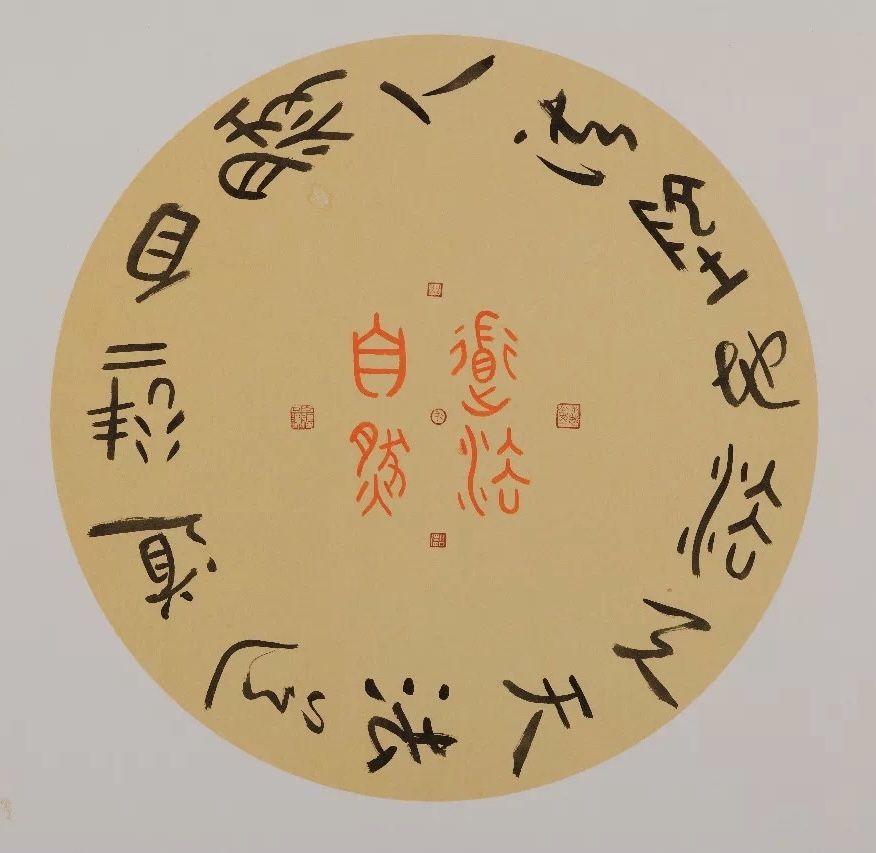 人法地地法天天法道道法自然
道法
自然